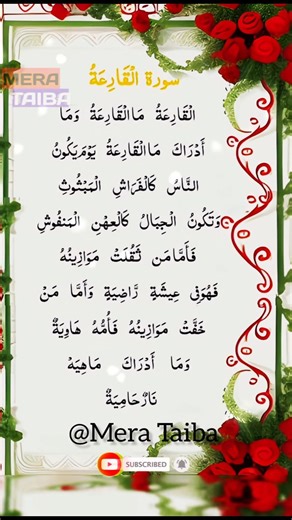 MERA
TAIBA
سورة الْقَارِعَةُ
الْقَارِعَةُ مَاالْقَارِعَةُ وَمَا
أَدْرَاكَ مَاالْقَارِعَةُ يَوْمَ يَكُونُ
النَّاسُ كَالْفَرَاشِ الْمَبْثُوثِ
وَتَكُونُ الْجِبَالُ كَالْعِهْنِ الْمَنفُوشِ
فَأَمَّامَن ثَقُلَتْ مَوَازِينُهُ
فَهُوَفِى عِيشَةٍ رَّاضِيَةٍ وَأَمَّا مَنْ
خَفَّتْ مَوَازِينُهُ فَأُمُّهُ هَاوِيَةٌ
وَمَا أَدْرَاكَ مَاهِيَهْ
نَارٌحَامِيَةٌ
@Mera Taiba
SUBSCRIBED